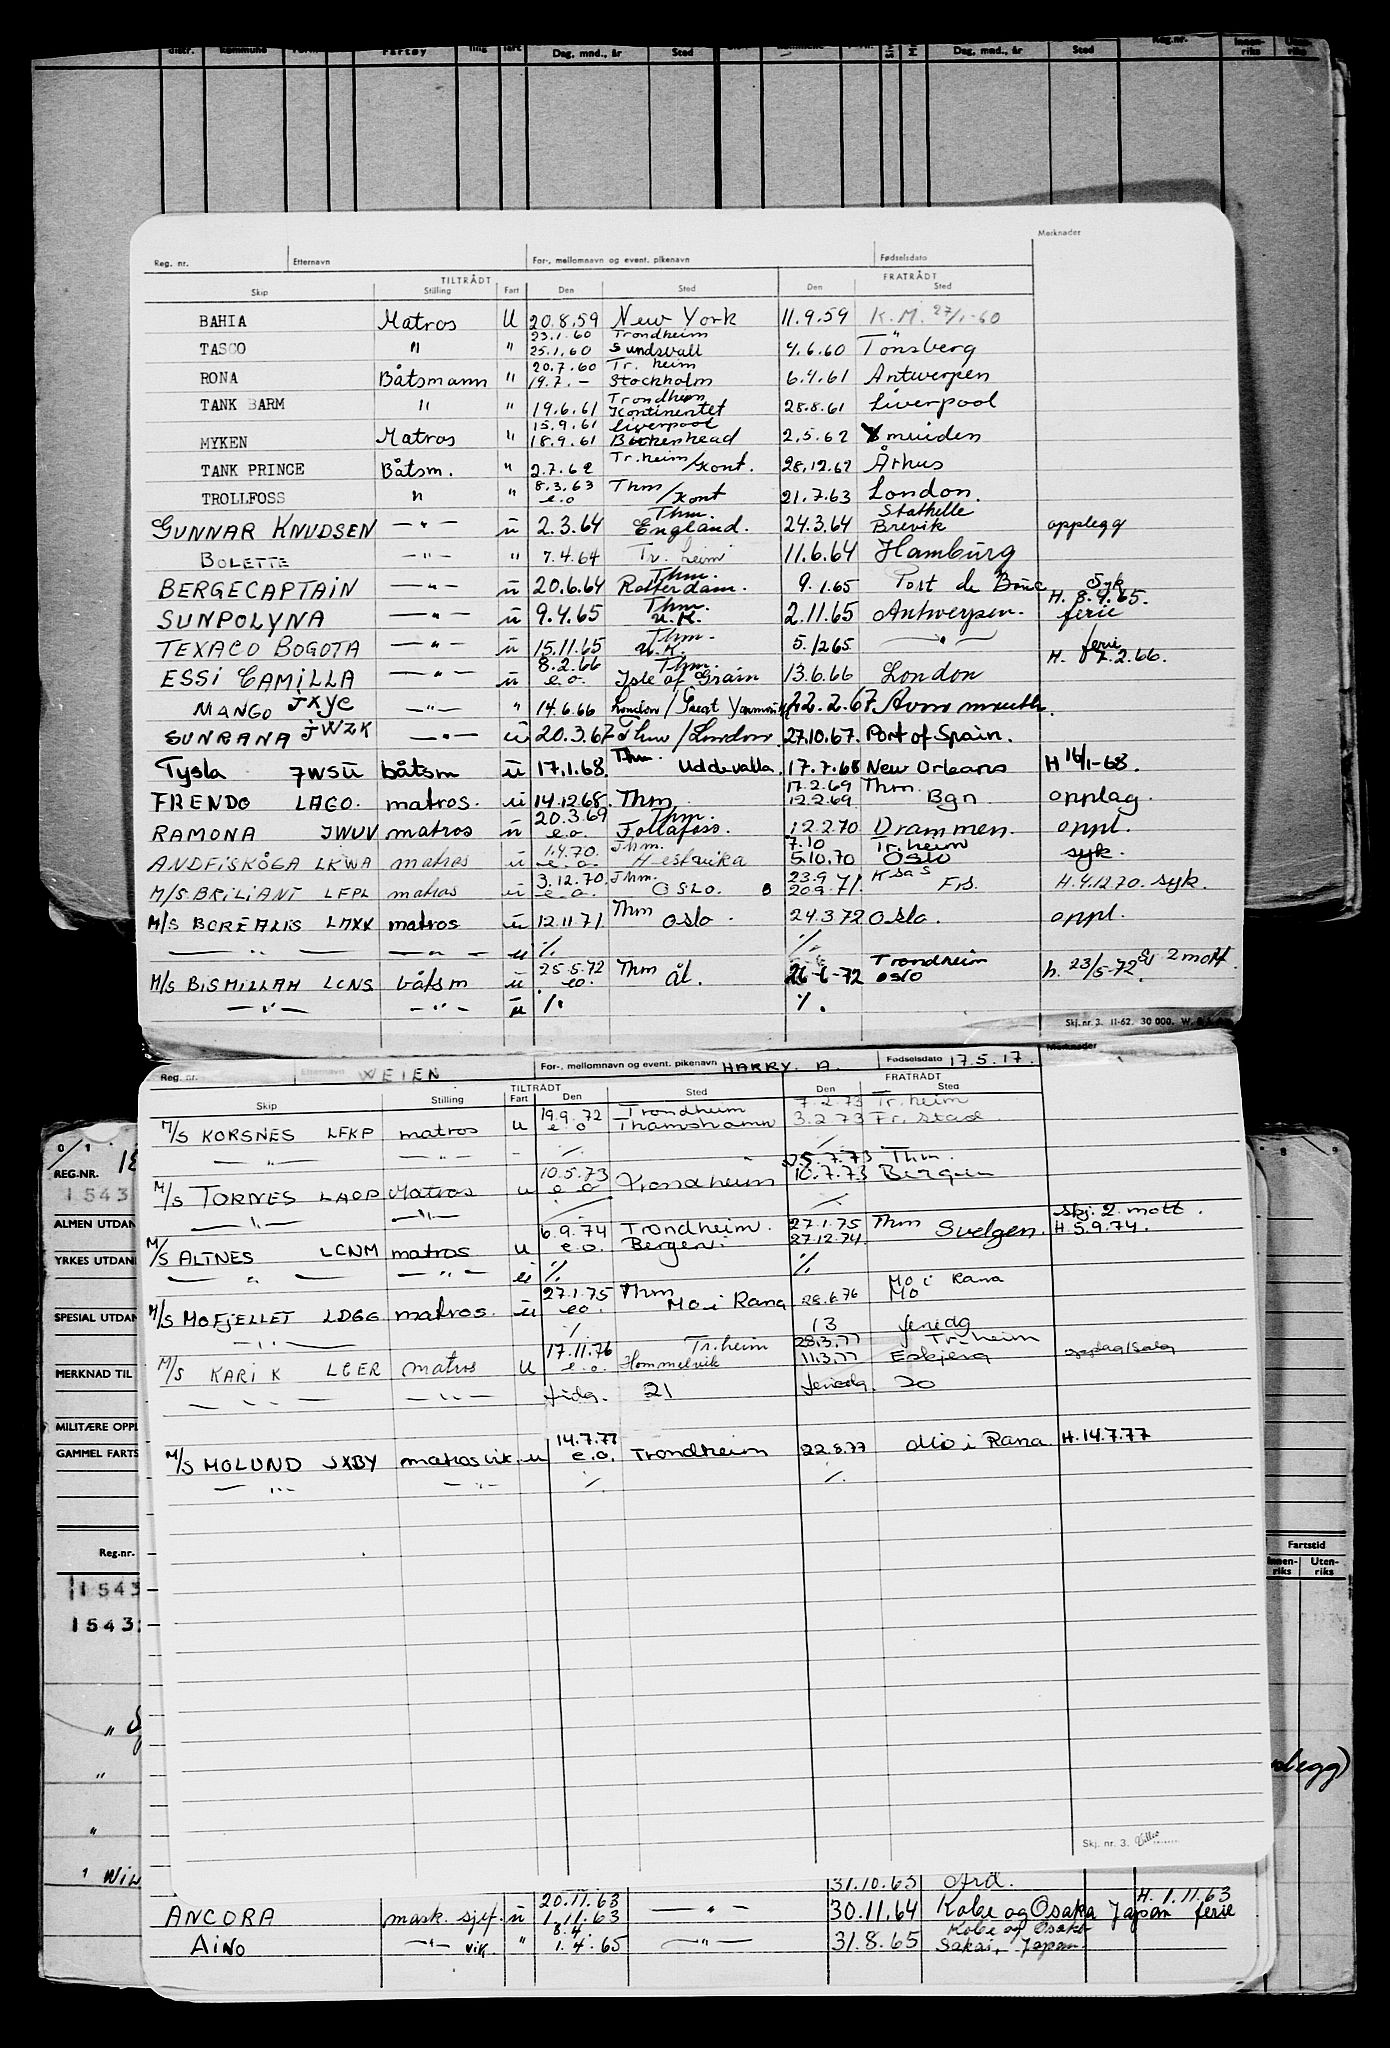 distr. Kommune Fartøy fart Dag, mnd., år Sted Dag, mnd., år Sted Reg.nr. Innen-riks Uten-riks
Merknader
Reg. nr. Etternavn For-, mellomnavn og event. pikenavn Fødselsdato
TILTRÅDT FRATRÅDT
Skip Stilling Fart Den Sted Den Sted
BAHIA Matros U 20.8.59 New York 11.9.59 K.M. 27/1-60
23.1.60 Trondheim "
TASCO " " 25.1.60 Sundsvall 4.6.60 Tønsberg
20.7.60 Tr.heim
RONA Båtsmann " 19.7.- Stockholm 6.4.61 Antwerpen
Trondheim
TANK BARM " " 19.6.61 Kontinentet 28.8.61 Liverpool
15.9.61 Liverpool
MYKEN Matros " 18.9.61 Birkenhead 2.5.62 Ymuiden
TANK PRINCE Båtsm. " 2.7.62 Tr.heim/Kont. 28.12.62 Århus
8.3.63 Thm
TROLLFOSS " " e.o /Kont 21.7.63 London.
Thm. Stathelle
GUNNAR KNUDSEN —"— u 2.3.64 England. 24.3.64 Brevik opplegg
BOLETTE —"— " 7.4.64 Tr.heim 11.6.64 Hamburg
Thm. Syk
BERGECAPTAIN —"— u 20.6.64 Rotterdam. 9.1.65 Port de Bouc H. 8.4.65.
Thm.
SUNPOLYNA —"— u 9.4.65 U.K. 2.11.65 Antwerpen. ferie
Thm. ferie
TEXACO BOGOTA —"— u 15.11.65 U.K. 5.1265 —"— H. 7.2.66.
8.2.66 Thm.
ESSI CAMILLA —"— u e.o. Isle of Grain 13.6.66 London
MANGO JXYC —"— " 14.6.66 London/Great Yarmouth 22.2.67 Avonmouth
SUNRANA JWZK —"— u 20.3.67 Thm/London 27.10.67. Port of Spain.
Tysla JWSU båtsm u 17.1.68. Thm. Uddevalla. 17.7.68 New Orleans H 16/1-68.
17.2.69 Thm.
FRENDO LAGO. matros. u 14.12.68. Thm 12.2.69 Bgn opplag.
20.3.69 Thm.
RAMONA JWUV matros u e.o. Follafoss. 12.2.70 Drammen. oppl.
1.4.70. Thm. 7.10 Tr.heim
ANDFISKØGA LKWA matros u e.o. Hestvika 5.10.70 Oslo syk.
3.12.70. Thm. 23.9 71 Ksas
M/S BRILIANT LFPL matros u e.o. OSLO. 20.9.71. Frs. H. 4.12.70. syk.
M/S BOREALIS LMXK matros u 12.11.71. Thm Oslo. 24.3.72 Oslo. oppl.
—"— —"— u ./. ./.
25.5.72 Trondheim
M/S BISMILLAH LCNS båtsm u eo. Thm Ål. 26-6-72 Oslo h. 23/5-72 2 mott.
—"— —"— u ./. ./.
Skj.nr. 3. 11-62. 30 000.
Merknader
Reg. nr. Etternavn WEIEN For-, mellomnavn og event. pikenavn HARRY. A. Fødselsdato 17.5.17.
TILTRÅDT FRATRÅDT
Skip Stilling Fart Den Sted Den Sted
19.9.72 Trondheim 7.2.73 Tr.heim
M/S KORSNES LFKP matros u e.o Thamshamn 3.2.73 Fr.stad
—"— —"— - ./. ./.
10.5.73 25.7.73 Thm.
M/S TORNES LAOP Matros u e.o Trondheim 10.7.73 Bergen
—"— —"— ./. ./. skj. 2. mott.
6.9.74 Trondheim. 27.1.75 Thm
M/S ALTNES LCNM matros u e.o. Bergen 27.12.74. Svelgen. H. 5.9.74.
—"— —"— u ./. ./.
27.1.75 Thm Mo i Rana
M/S MOFJELLET LDGG matros. u eo. Mo i Rana 28.6.76 Mo
—"— ./. 13 feriedg
17.11.76 Tr.heim 28.3.77 Tr.heim
M/S KARI K LGER matros u e.o. Hommelvik 11.3.77 Esbjerg opplag/salg
—"— —"— fridg. 21 feriedg. 20
14.7.77
M/S MOLUND JXBY matros vik. u e.o. Trondheim 22.8.77 Mo i Rana H. 14.7.77
—"— —"— ./. ./.
Skj. nr. 3.
REG.NR.
1543
ALMEN UTDAN
YRKES UTDAN
SPESIAL UTDAN
MERKNAD TIL
MILITÆRE OPPL
GAMMEL FARTS
Reg.nr.
1543
1543
Fartstid
Innen-riks Uten-riks
legg)
31.10.63
20.11.63 H. 1.11.63
ANCORA mask. sjef. u 1.11.63 —"— 30.11.64 Kobe og Osaka Japan ferie
8.4. Kobe og Osaka
AINO —"— vik. " 1.4.65 —"— 31.8.65 Sakai, Japan.